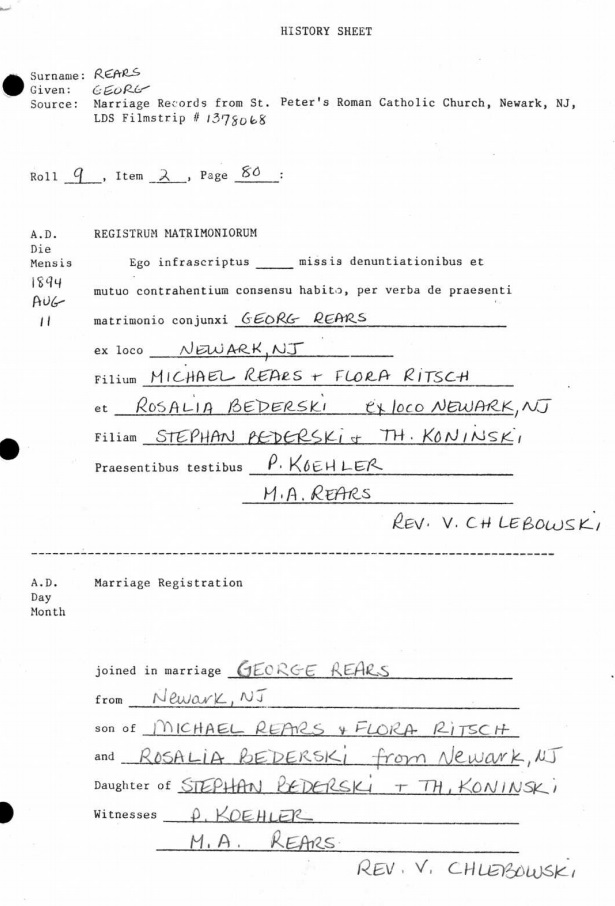 HISTORY SHEET
Surname: REARS
Given: GEORG
Source: Marriage Records from St. Peter's Roman Catholic Church, Newark, NJ,
LDS Filmstrip # 1378068
Roll 9, Item 2, Page 80:
A.D. REGISTRUM MATRIMONIORUM
Die
Mensis Ego infrascriptus _____ missis denuntiationibus et
1894
mutuo contrahentium consensu habito, per verba de praesenti
AUG
11 matrimonio conjunxi GEORG REARS
ex loco NEWARK, NJ
Filium MICHAEL REARS + FLORA RITSCH
et ROSALIA BEDERSKI ex loco NEWARK, NJ
Filiam STEPHAN BEDERSKI + TH. KONINSKI
Praesentibus testibus P. KOEHLER
M.A. REARS
REV. V. CHLEBOWSKI
A.D. Marriage Registration
Day
Month
joined in marriage GEORGE REARS
from Newark, NJ
son of MICHAEL REARS + FLORA RITSCH
and ROSALIA BEDERSKI from Newark, NJ
Daughter of STEPHAN BEDERSKI + TH. KONINSKI
Witnesses P. KOEHLER
M.A. REARS
REV. V. CHLEBOWSKI